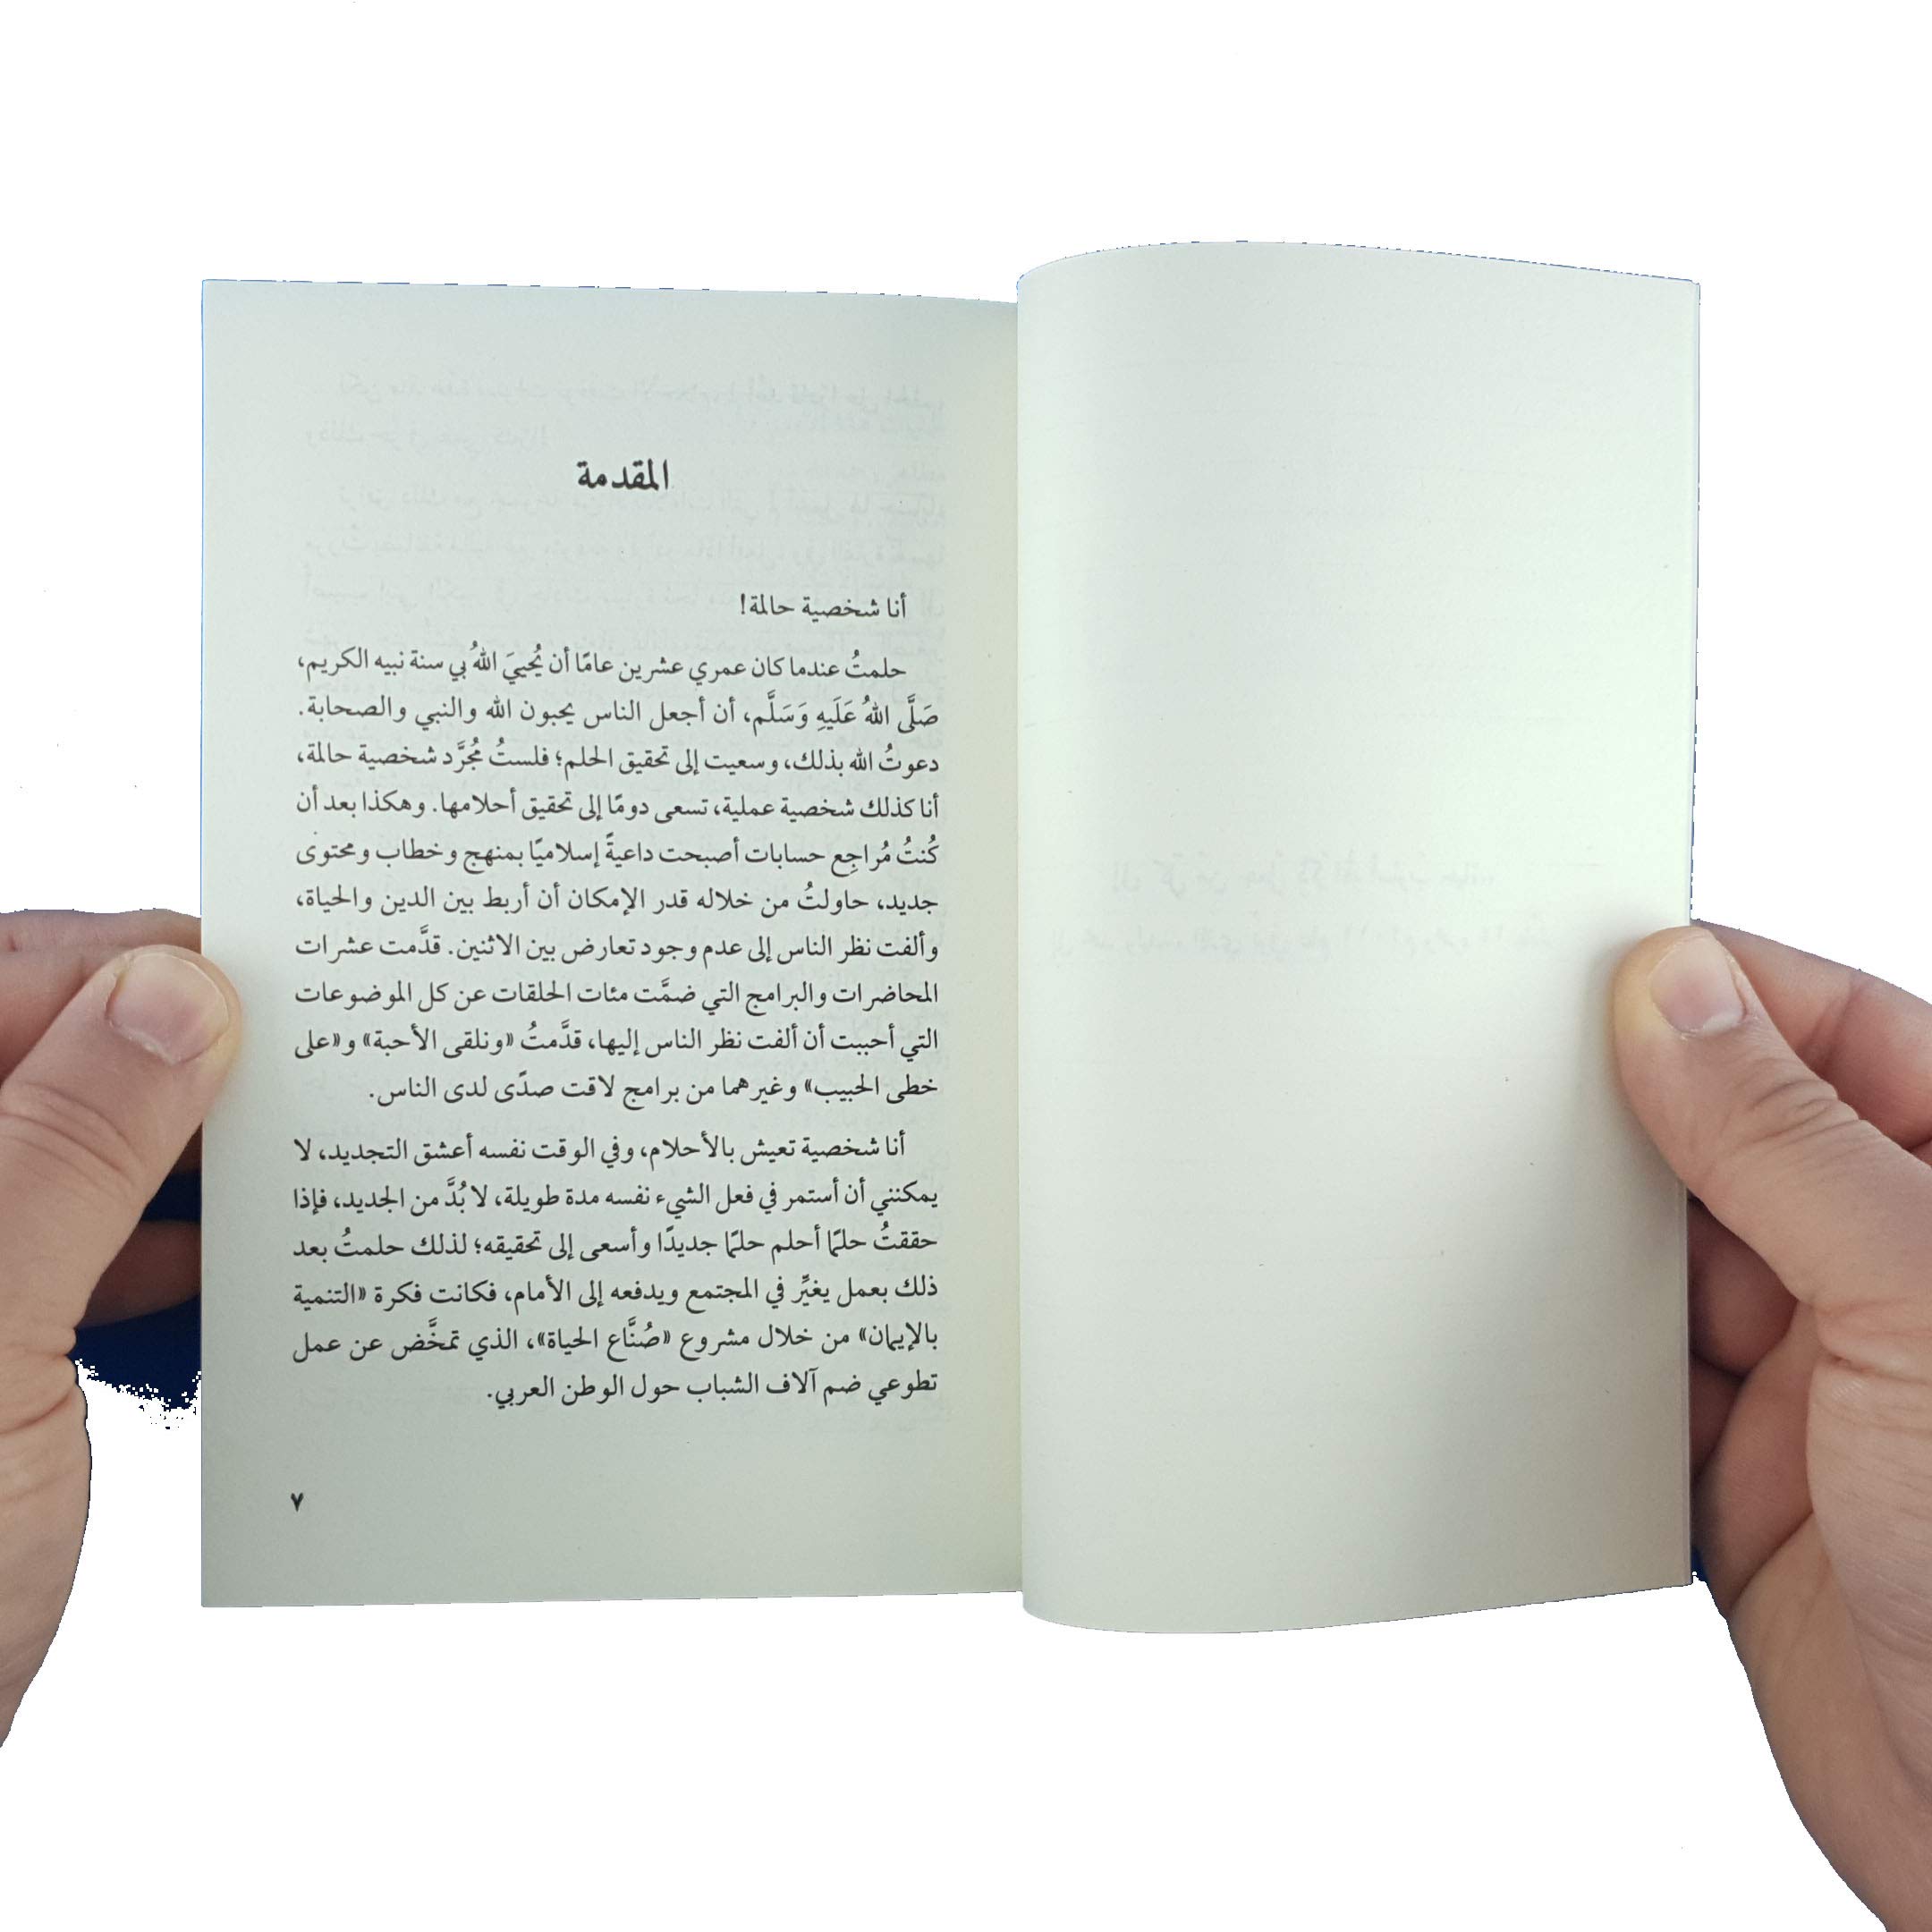 المقدمة
أنا شخصية حالمة!
حلمتُ عندما كان عمري عشرين عامًا أن يُحييَ اللهُ بي سنة نبيه الكريم،
صَلَّى اللهُ عَلَيهِ وَسَلَّم، أن أجعل الناس يحبون الله والنبي والصحابة.
دعوتُ الله بذلك، وسعيت إلى تحقيق الحلم؛ فلستُ مُجرَّد شخصية حالمة،
أنا كذلك شخصية عملية، تسعى دومًا إلى تحقيق أحلامها. وهكذا بعد أن
كُنتُ مُراجِع حسابات أصبحت داعيةً إسلاميًا بمنهج وخطاب ومحتوى
جديد، حاولتُ من خلاله قدر الإمكان أن أربط بين الدين والحياة،
وألفت نظر الناس إلى عدم وجود تعارض بين الاثنين. قدَّمت عشرات
المحاضرات والبرامج التي ضمَّت مئات الحلقات عن كل الموضوعات
التي أحببت أن ألفت نظر الناس إليها، قدَّمتُ «ونلقى الأحبة» و«على
خطى الحبيب» وغيرهما من برامج لاقت صدًى لدى الناس.
أنا شخصية تعيش بالأحلام، وفي الوقت نفسه أعشق التجديد، لا
يمكنني أن أستمر في فعل الشيء نفسه مدة طويلة، لا بُدَّ من الجديد، فإذا
حققتُ حلمًا أحلم حلمًا جديدًا وأسعى إلى تحقيقه؛ لذلك حلمتُ بعد
ذلك بعمل يغيِّر في المجتمع ويدفعه إلى الأمام، فكانت فكرة «التنمية
بالإيمان» من خلال مشروع «صُنَّاع الحياة»، الذي تمخَّض عن عمل
تطوعي ضم آلاف الشباب حول الوطن العربي.
٧